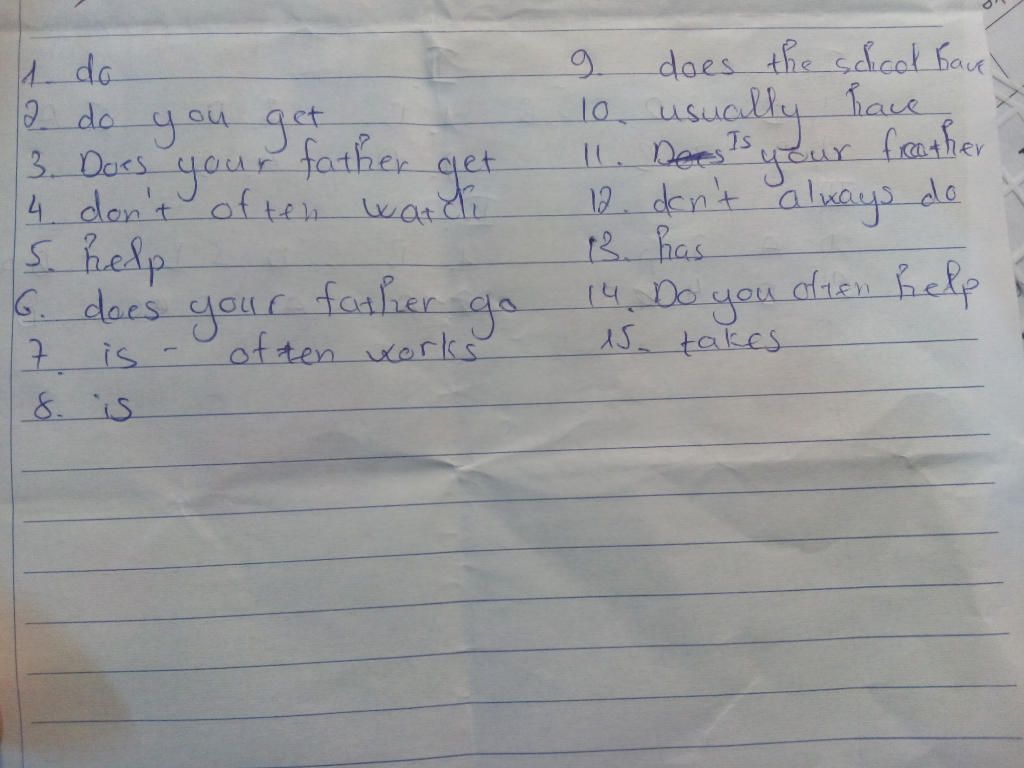 1. do
2. do you get
3. Does your father get
4. don't often watch
5. help
6. does your father go
7. is - often works
8. is
9. does the school have
10. usually have
11. Does Is your father
12. don't always do
13. has
14. Do you often help
15. takes